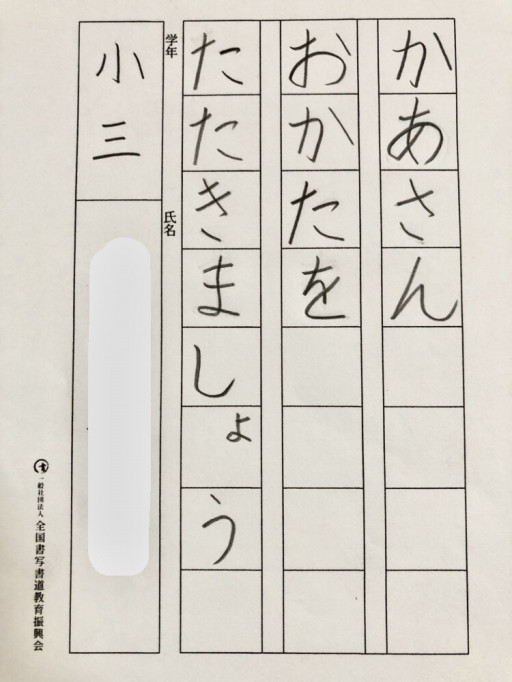 かあさん
おかたを
たたきましょう
学年
小三
氏名
一般社団法人 全国書写書道教育振興会